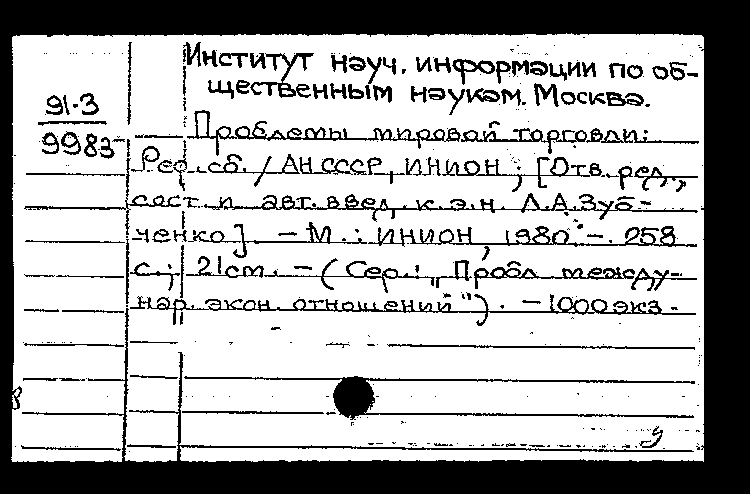 Институт науч. информации по об-
щественным наукам. Москва.
91-3
9983
Проблемы мировой торговли:
Реф. сб. / АН СССР, ИНИОН; [Отв. ред.,
сост. и авт. введ. к.э.н. Л.А. Зуб-
ченко]. - М.: ИНИОН, 1980. - 258
с.; 21 cm. - (Сер.: "Пробл. междун-
нар. экон. отношений"). - 1000 экз.